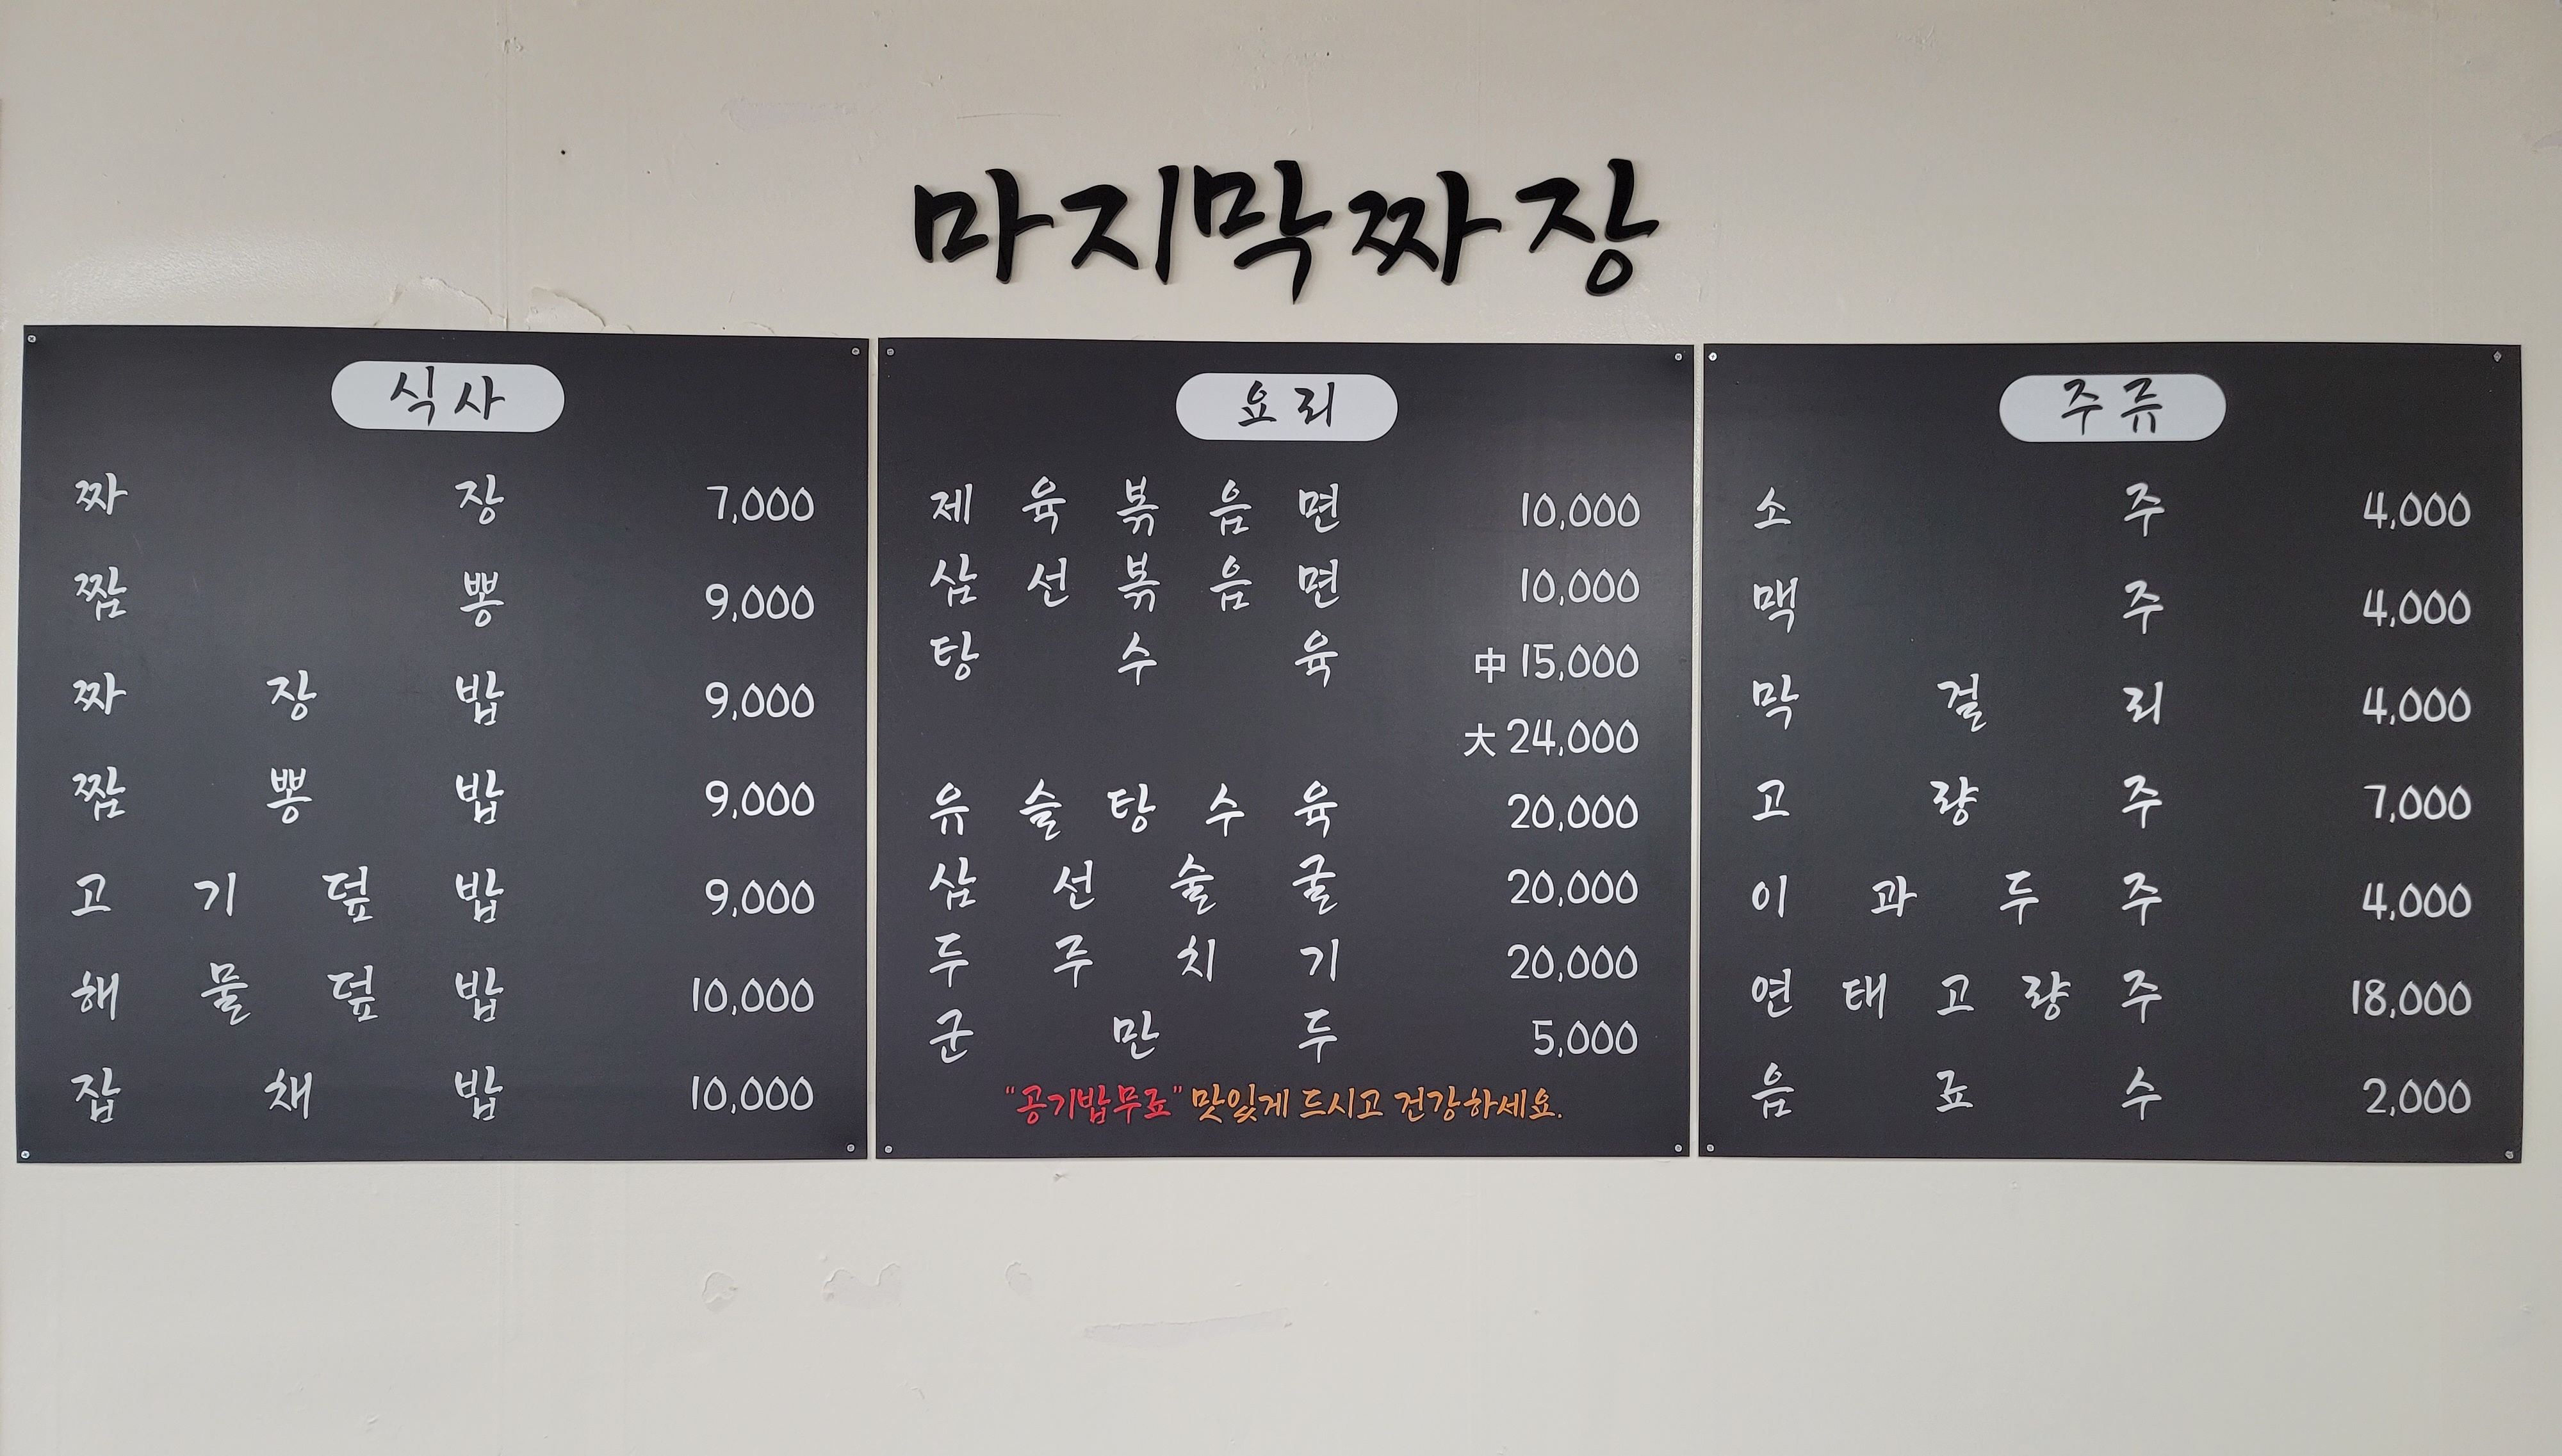 마지막짜장
식사
짜장 7,000
짬뽕 9,000
짜장밥 9,000
짬뽕밥 9,000
고기덮밥 9,000
해물덮밥 10,000
잡채밥 10,000
요리
제육볶음면 10,000
삼선볶음면 10,000
탕수육 中 15,000
大 24,000
유슬탕수육 20,000
삼선술굴 20,000
두주치기 20,000
군만두 5,000
"공기밥무료" 맛있게 드시고 건강하세요.
주류
소주 4,000
맥주 4,000
막걸리 4,000
고량주 7,000
이과두주 4,000
연태고량주 18,000
음료수 2,000